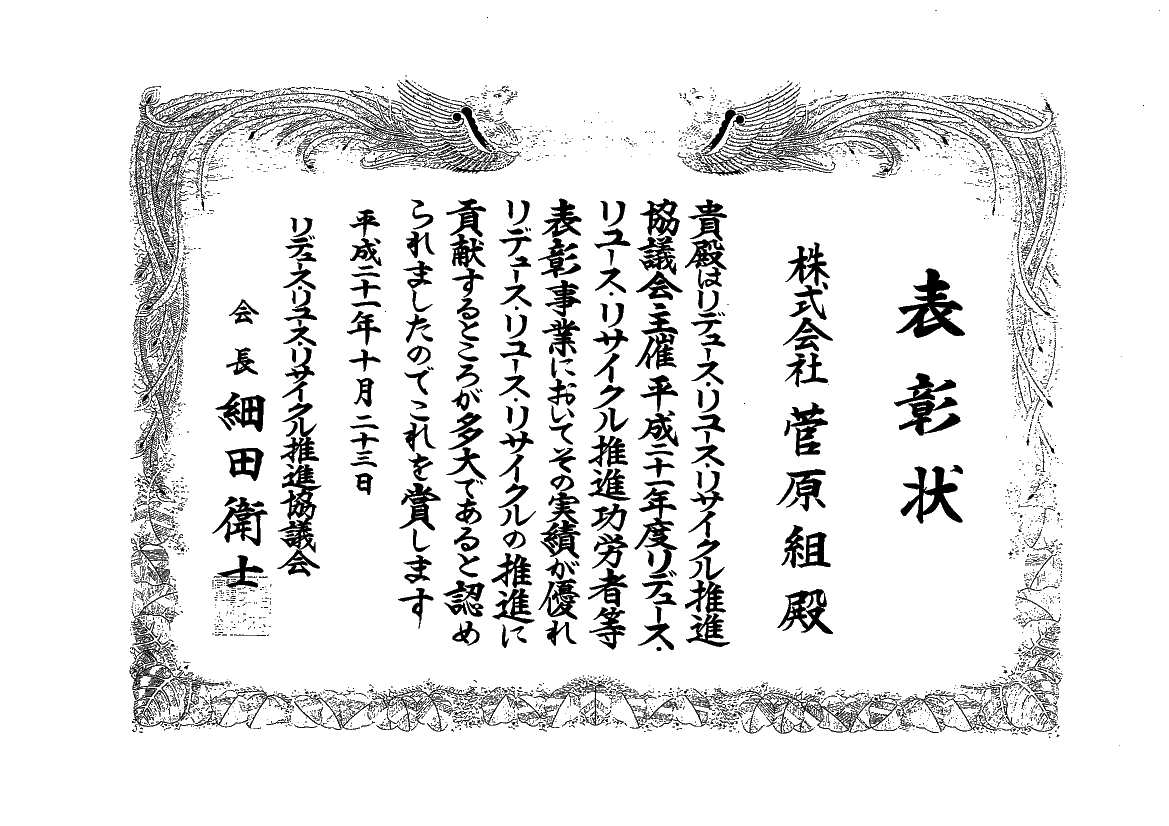 表彰状
株式会社 菅原組殿
貴殿はリデュース・リユース・リサイクル推進
協議会主催平成二十一年度リデュース・
リユース・リサイクル推進功労者等
表彰事業においてその実績が優れ
リデュース・リユース・リサイクルの推進に
貢献するところが多大であると認め
られましたのでこれを賞します
平成二十一年十月二十三日
リデュース・リユース・リサイクル推進協議会
会長 細田衛士